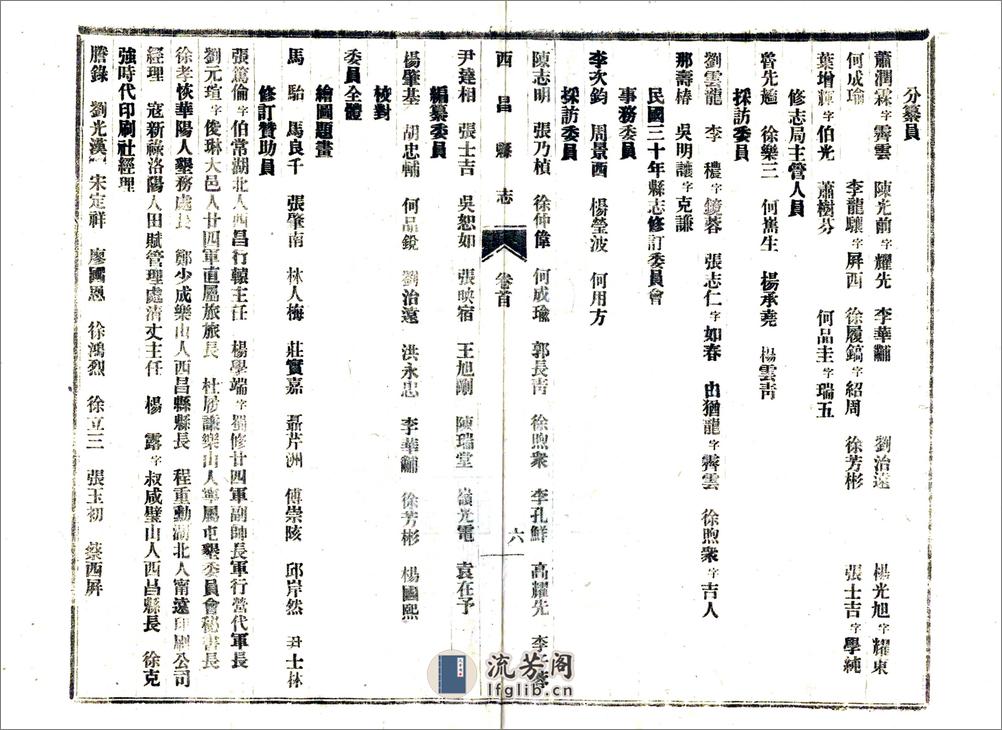 分纂員
蕭潤霖字霽雲 陳光前字耀先 李華黼 劉治遠 楊光旭字耀東
何成瑜 李龍驤字屏西 徐履鎬字紹周 徐芳彬 張士吉字學純
葉增輝字伯光 蕭樹芬 何品圭字瑞五
修志局主管人員
曾先 徐樂三 何嵩生 楊承堯 楊雲青
採訪委員
劉雲龍 李禮字鏡蓉 張志仁字如春 由猶龍字霽雲 徐煦衆字吉人
那壽椿 吳明讓字克謙
民國三十年縣志修訂委員會
事務委員
李次鈞 周景西 楊瑩波 何用方
採訪委員
陳志明 張乃楨 徐仲偉 何成瑜 郭長靑 徐煦衆 李孔鮮 高耀先 李
西昌縣志 卷首 六
尹達相 張士吉 吳恕如 張映宿 王旭剛 陳瑞堂 嶺光電 袁在予
編纂委員
楊肇基 胡忠輔 何品銳 劉治遠 洪永忠 李華黼 徐芳彬 楊國熙
校對
委員全體
繪圖題畫
馬駘 馬良千 張肇南 林人梅 莊實嘉 聶芹洲 傅崇陔 邱岸然 尹士林
修訂贊助員
張篤倫字伯常湖北人西昌行轅主任 楊學端字蜀修廿四軍副師長軍行營代軍長
劉元瑄字俊琳大邑人廿四軍直屬旅旅長 杜履謙樂山人寧屬屯墾委員會秘書長
徐孝恢華陽人墾務處長 鄭少成樂山人西昌縣縣長 程重動湖北人甯遠印刷公司
經理 寇新祿洛陽人田賦管理處清丈主任 楊露字叔咸璧山人西昌縣長 徐克
強時代印刷社經理
謄錄 劉光漢 宋定祥 廖國恩 徐鴻烈 徐立三 張玉初 蔡西屏
流芳阁
lfglib.cn